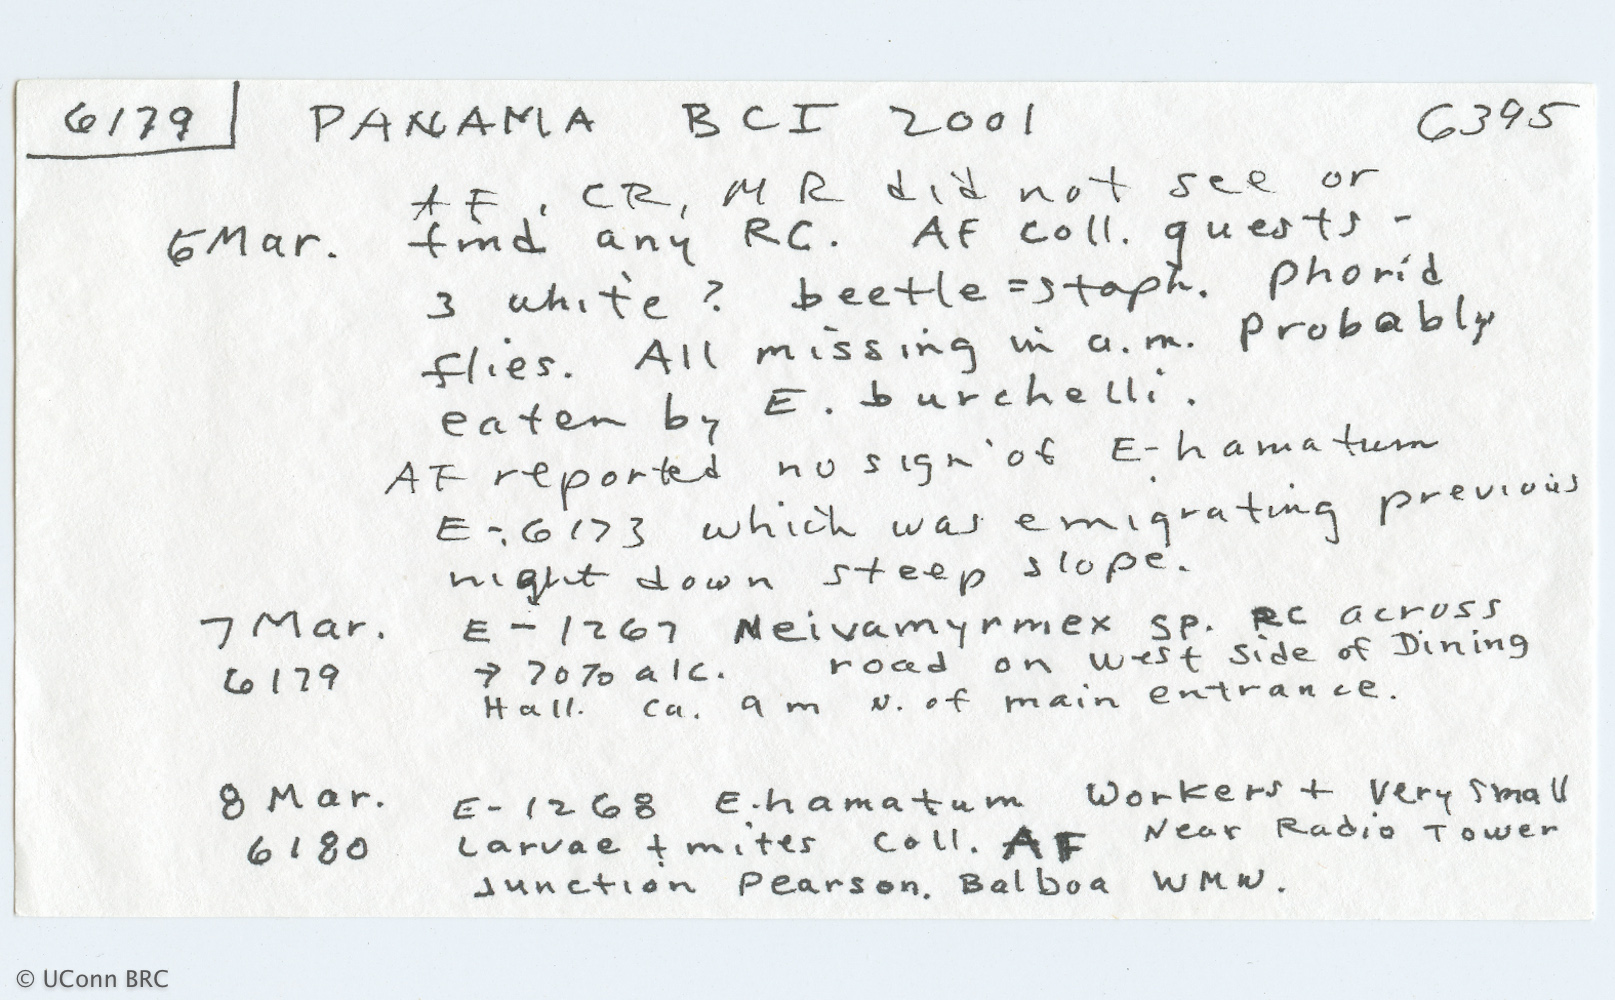 6179 PANAMA BCI 2001 6395
AF, CR, MR did not see or
6 Mar. find any RC. AF coll. guests -
3 white? beetle = staph. phorid
flies. All missing in a.m. Probably
eaten by E. burchelli.
AF reported no sign of E-hamatum
E-6173 which was emigrating previous
night down steep slope.
7 Mar. E-1267 Neivamyrmex sp. RC across
6179 → 70% alc. road on west side of Dining
Hall. ca. 9m N. of main entrance.
8 Mar. E-1268 E.hamatum Workers + very small
6180 Larvae + mites Coll. AF Near Radio Tower
Junction Pearson. Balboa WMW.
© UConn BRC